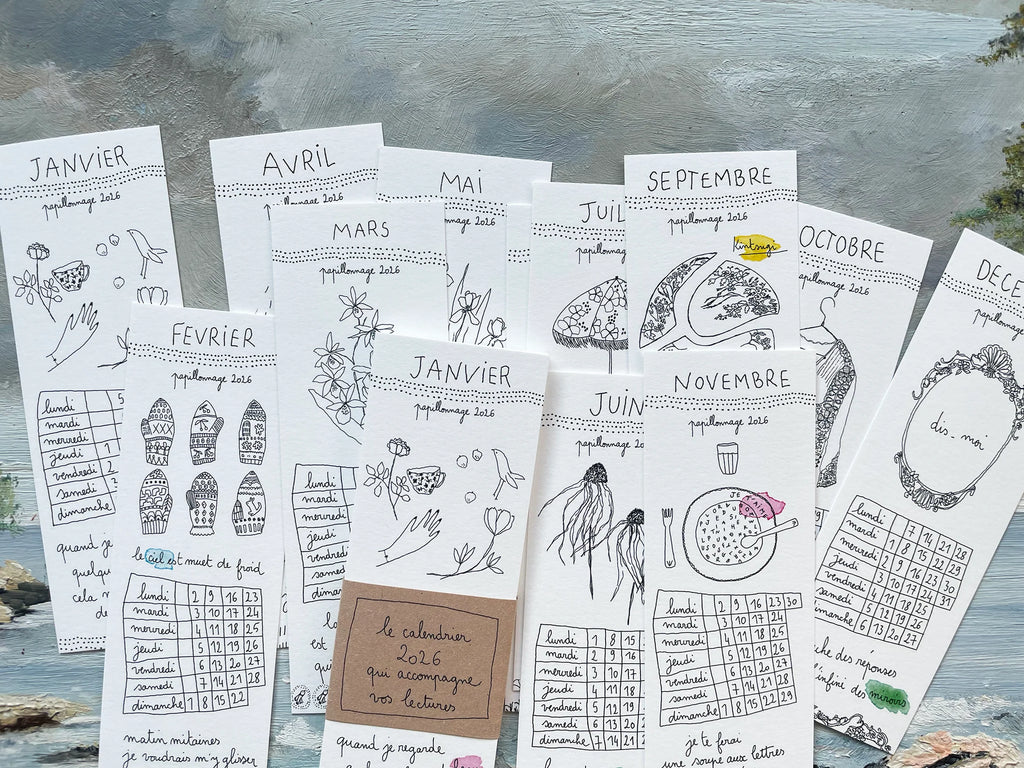 JANVIER
papillonnage 2026
lundi 5
mardi
mercredi
jeudi 1
vendredi 2
samedi
dimanche
quand je
quelqu
cela m
de
AVRIL
papillonnage 2026
MAI
papillonnage 2026
MARS
papillonnage 2026
lundi
mardi
mercredi
jeudi
vendredi
samedi
dimanche
est
FÉVRIER
papillonnage 2026
le ciel est muet de froid
lundi 2 9 16 23
mardi 3 10 17 24
mercredi 4 11 18 25
jeudi 5 12 19 26
vendredi 6 13 20 27
samedi 7 14 21 28
dimanche 1 8 15 22
matin mitaines
je voudrais m'y glisser
JANVIER
papillonnage 2026
le calendrier
2026
qui accompagne
vos lectures
quand je regarde
JUIL
papillonnage 2026
JUIN
papillonnage 2026
lundi 1 8 15
mardi 2 9 16
mercredi 3 10 17
jeudi 4 11 18
vendredi 5 12 19
samedi 6 13 20
dimanche 7 14 21
SEPTEMBRE
papillonnage 2026
Kintsugi
NOVEMBRE
papillonnage 2026
lundi 2 9 16 23 30
mardi 3 10 17 24
mercredi 4 11 18 25
jeudi 5 12 19 26
vendredi 6 13 20 27
samedi 7 14 21 28
dimanche 1 8 15 22 29
je te ferai
une soupe aux lettres
OCTOBRE
papillonnage 2026
DECE
papillonnage
dis-moi
lundi 7 14 21 28
mardi 1 8 15 22 29
mercredi 2 9 16 23 30
jeudi 3 10 17 24 31
vendredi 4 11 18 25
samedi 5 12 19 26
dimanche 6 13 20 27
che des réponses
l'infini des miroirs